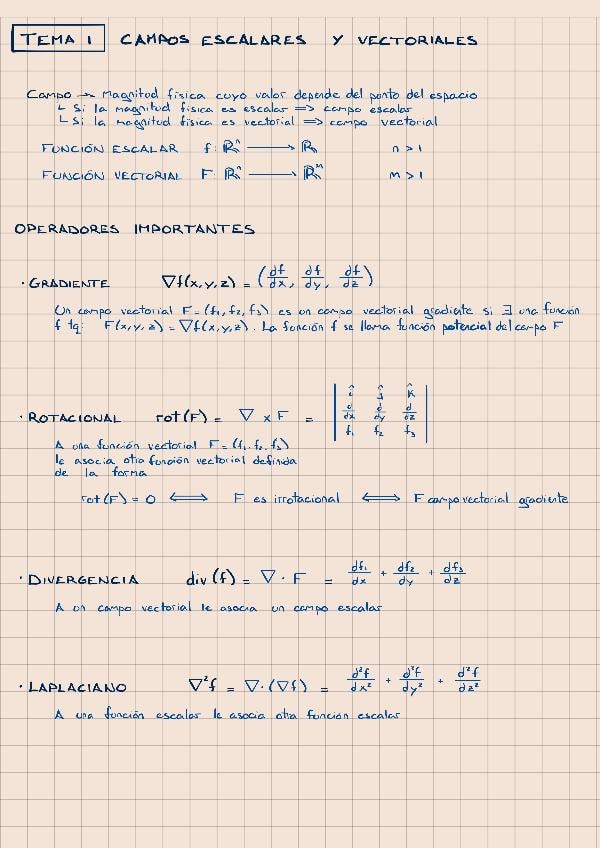 TEMA 1 CAMPOS ESCALARES Y VECTORIALES
Campo → Magnitud física cuyo valor depende del punto del espacio
↳ Si la magnitud física es escalar => campo escalar
↳ Si la magnitud física es vectorial => campo vectorial
FUNCIÓN ESCALAR f: ℝⁿ → ℝ n > 1
FUNCIÓN VECTORIAL F: ℝⁿ → ℝᵐ m > 1
OPERADORES IMPORTANTES
· GRADIENTE ∇f(x,y,z) = (df/dx, df/dy, df/dz)
Un campo vectorial F = (f₁, f₂, f₃) es un campo vectorial gradiente si ∃ una función
f tq: F(x,y,z) = ∇f(x,y,z). La función f se llama función potencial del campo F
· ROTACIONAL rot(F) = ∇ x F = | î ĵ k̂ |
| d/dx d/dy d/dz |
| f₁ f₂ f₃ |
A una función vectorial F = (f₁, f₂, f₃)
le asocia otra función vectorial definida
de la forma
rot(F) = 0 <=> F es irrotacional <=> F campo vectorial gradiente
· DIVERGENCIA div(f) = ∇ · F = df₁/dx + df₂/dy + df₃/dz
A un campo vectorial le asocia un campo escalar
· LAPLACIANO ∇²f = ∇·(∇f) = d²f/dx² + d²f/dy² + d²f/dz²
A una función escalar le asocia otra función escalar